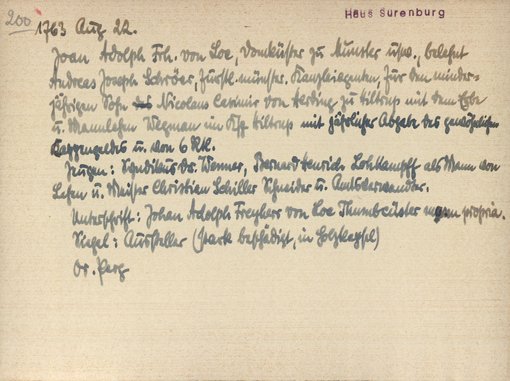 Haus Surenburg
200
1763 Aug 22.
Joan Adolph Frh. von Loe, Domküster zu Münster usw., belehnt
Andreas Joseph Schröder, fürstl. münster. Kanzleiagenten, für den minder-
jährigen Sohn Nicolaus Casimir von Herding zu Hiltrup mit dem Erbe
u. Mannlehen Wegman im Ksp Hiltrup mit jährlicher Abgabe des gewöhnlichen
Kappengeldes u. von 6 Rtl.
Zeugen: Syndikus Dr. Werner, Bernard Henrich Lohkampff als Mann von
Lehen u. Meister Christian Schiller Schneider u. Amtsverwandter.
Unterschrift: Johan Adolph Freyherr von Loe Thumbcüster mpen propria.
Siegel: Aussteller (stark beschädigt, in Holzkapsel)
Or. Perg